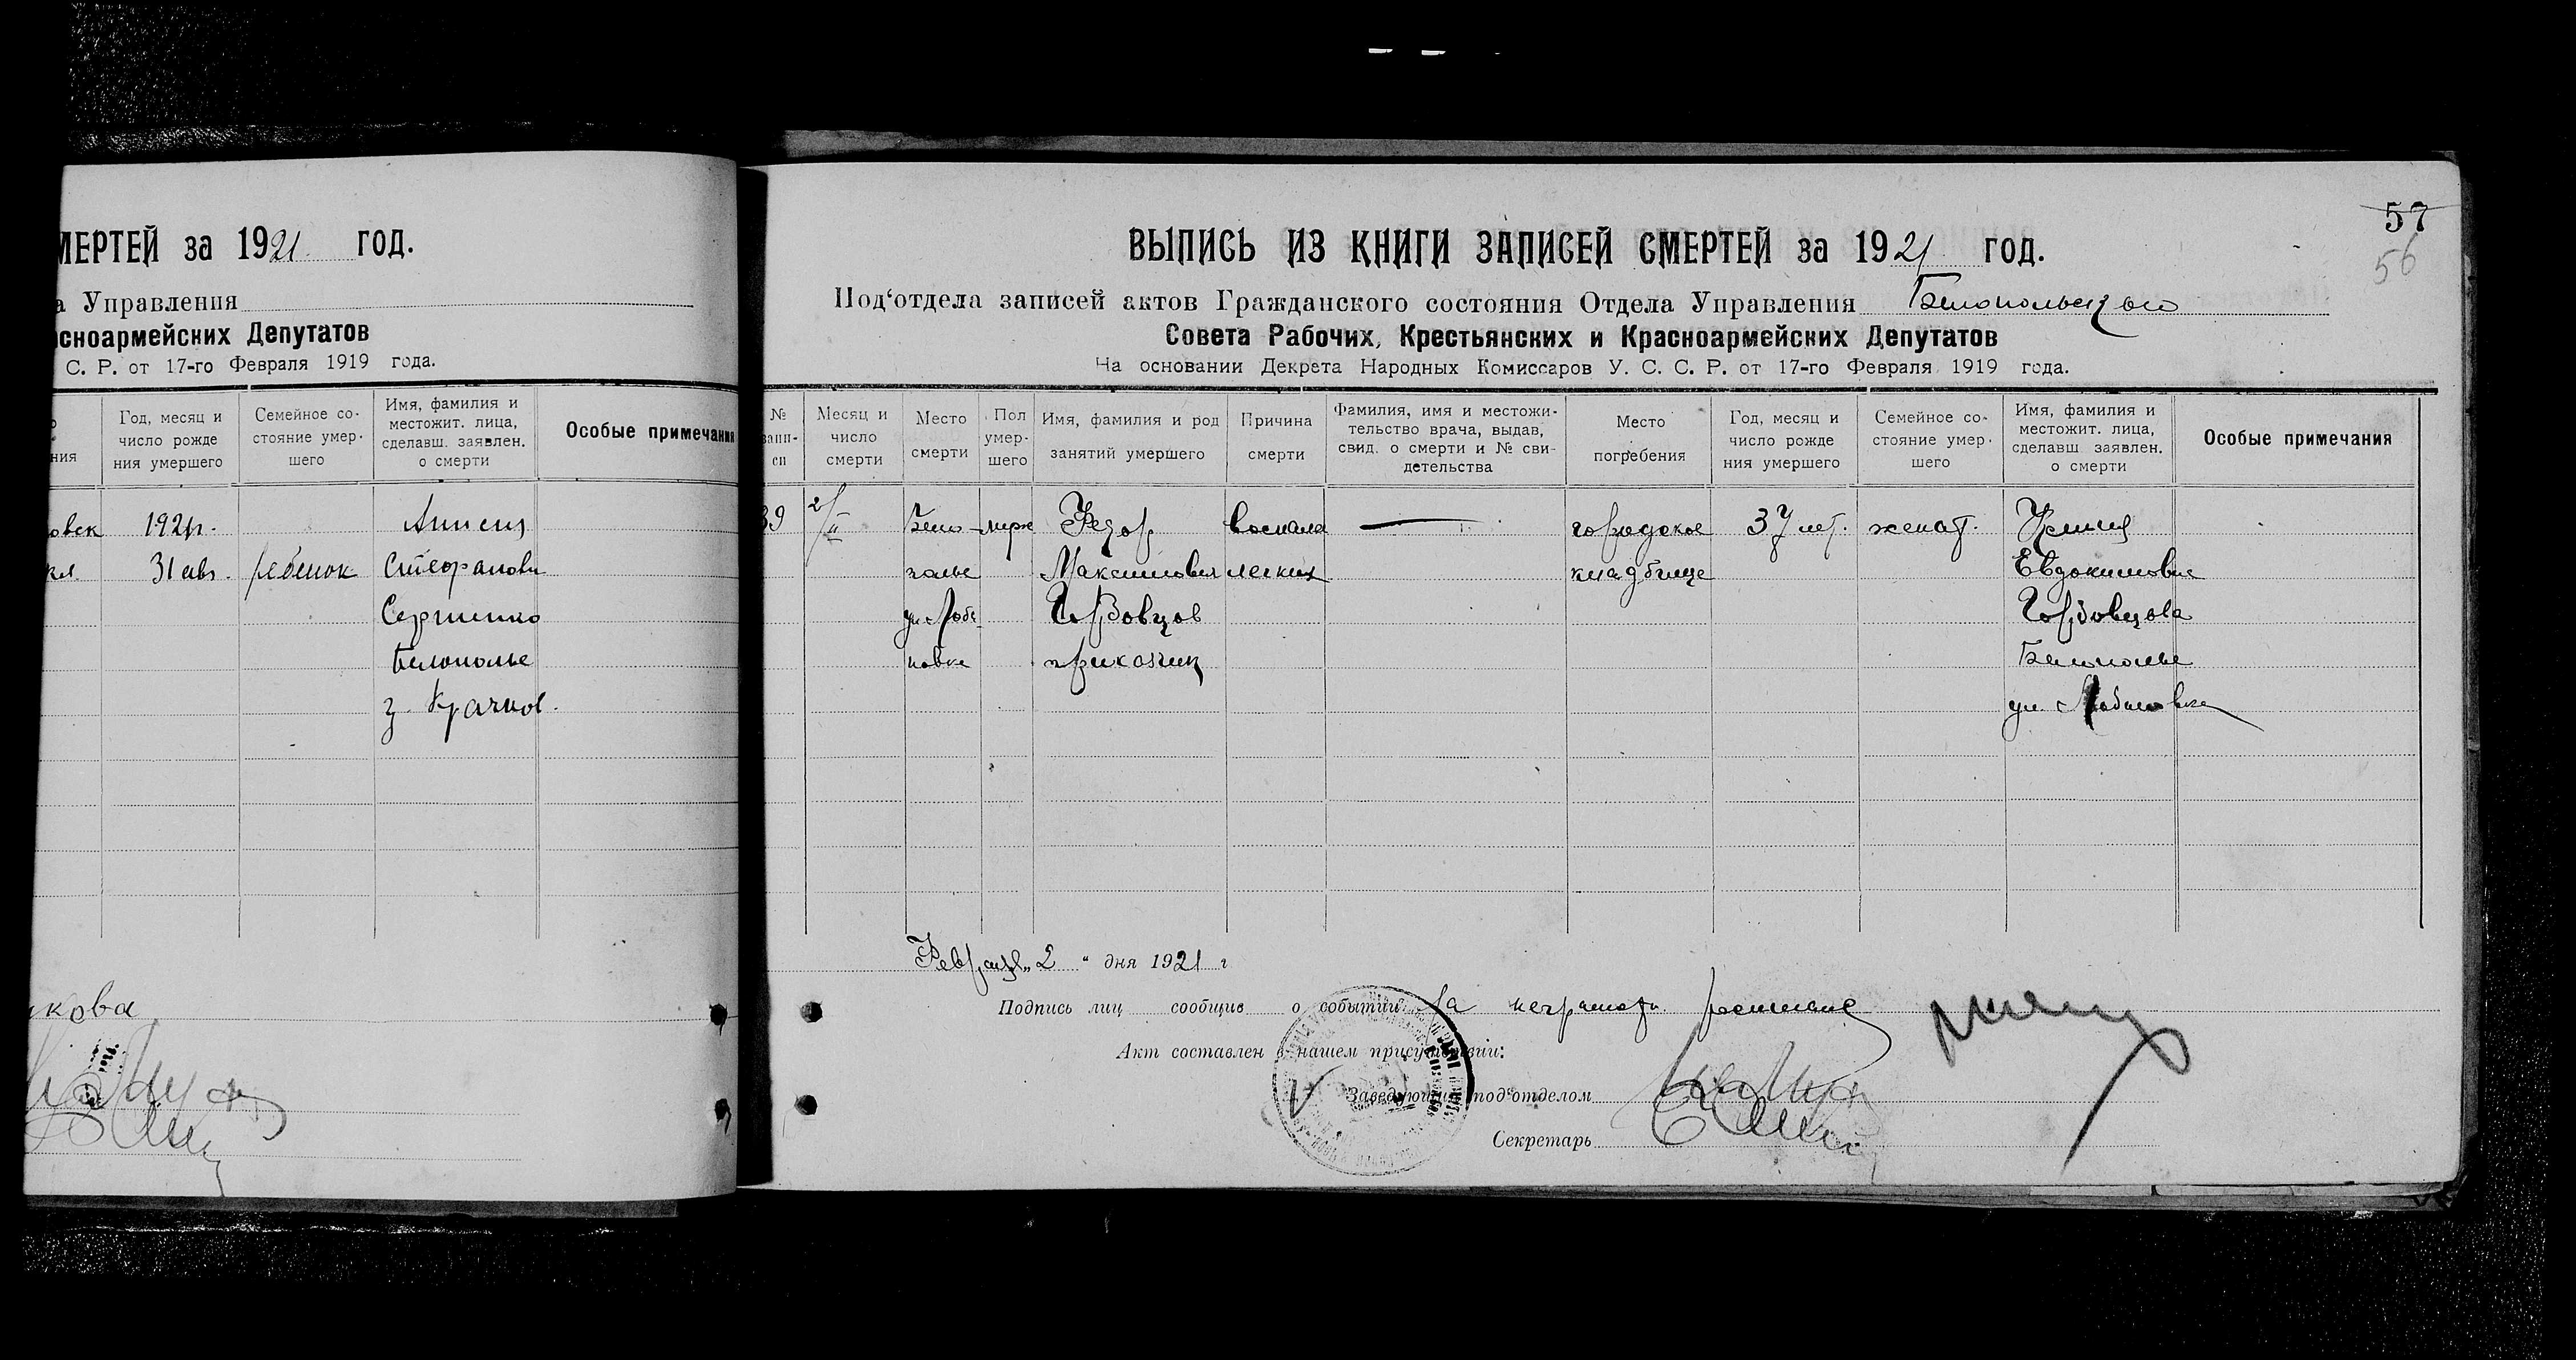 МЕРТЕЙ за 1921 год.
а Управления
сноармейских Депутатов
С. Р. от 17-го Февраля 1919 года.
ния
Год, месяц и число рожде ния умершего
Семейное со- стояние умер- шего
Имя, фамилия и местожит. лица, сделавш. заявлен. о смерти
Особые примечания
овск 1921г.
31 янв. ребенок Стефанови
Сергиенко
Белополье
кова
57
56
ВЫПИСЬ ИЗ КНИГИ ЗАПИСЕЙ СМЕРТЕЙ за 1921 год.
Под‘отдела записей актов Гражданского состояния Отдела Управления Белопольского
Совета Рабочих, Крестьянских и Красноармейских Депутатов
На основании Декрета Народных Комиссаров У. С. С. Р. от 17-го Февраля 1919 года.
№ запи- си
Месяц и число смерти
Место смерти
Пол умер- шего
Имя, фамилия и род занятий умершего
Причина смерти
Фамилия, имя и местожи- тельство врача, выдав, свид. о смерти и № сви- детельства
Место погребения
Год, месяц и число рожде ния умершего
Семейное со- стояние умер- шего
Имя, фамилия и местожит. лица, сделавш. заявлен. о смерти
Особые примечания
39 2/II Бело- муж Федор воспале городское 37 лет. женат.
полье Максимович легких кладбище Евдокимовна
ул. Горбовцов Горбовцова
новка приказчик Белополье
ул.
Февраля „2“ дня 1921 г
Подпись лиц сообщив о событии За неграмотн.
Акт составлен в нашем присутствии:
Заведующий под‘отделом
Секретарь